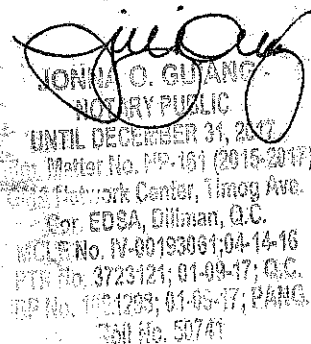 JONNA O. GUIANG
NOTARY PUBLIC
UNTIL DECEMBER 31, 2017
Matter No. NP-161 (2015-2017)
Network Center, Timog Ave.
Cor. EDSA, Diliman, Q.C.
MCLE No. IV-00193061;04-14-16
PTR No. 3723121; 01-09-17; Q.C.
IBP No. 01-05-17; PANG.
Roll No. 50741